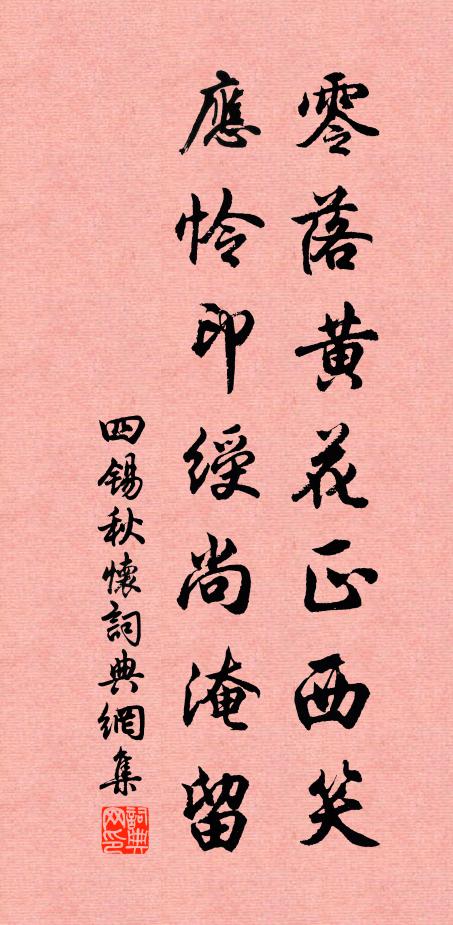 零落黄花正西笑
應怜印綬尚淹留
四錫秋懷詞典網集
詞典网印